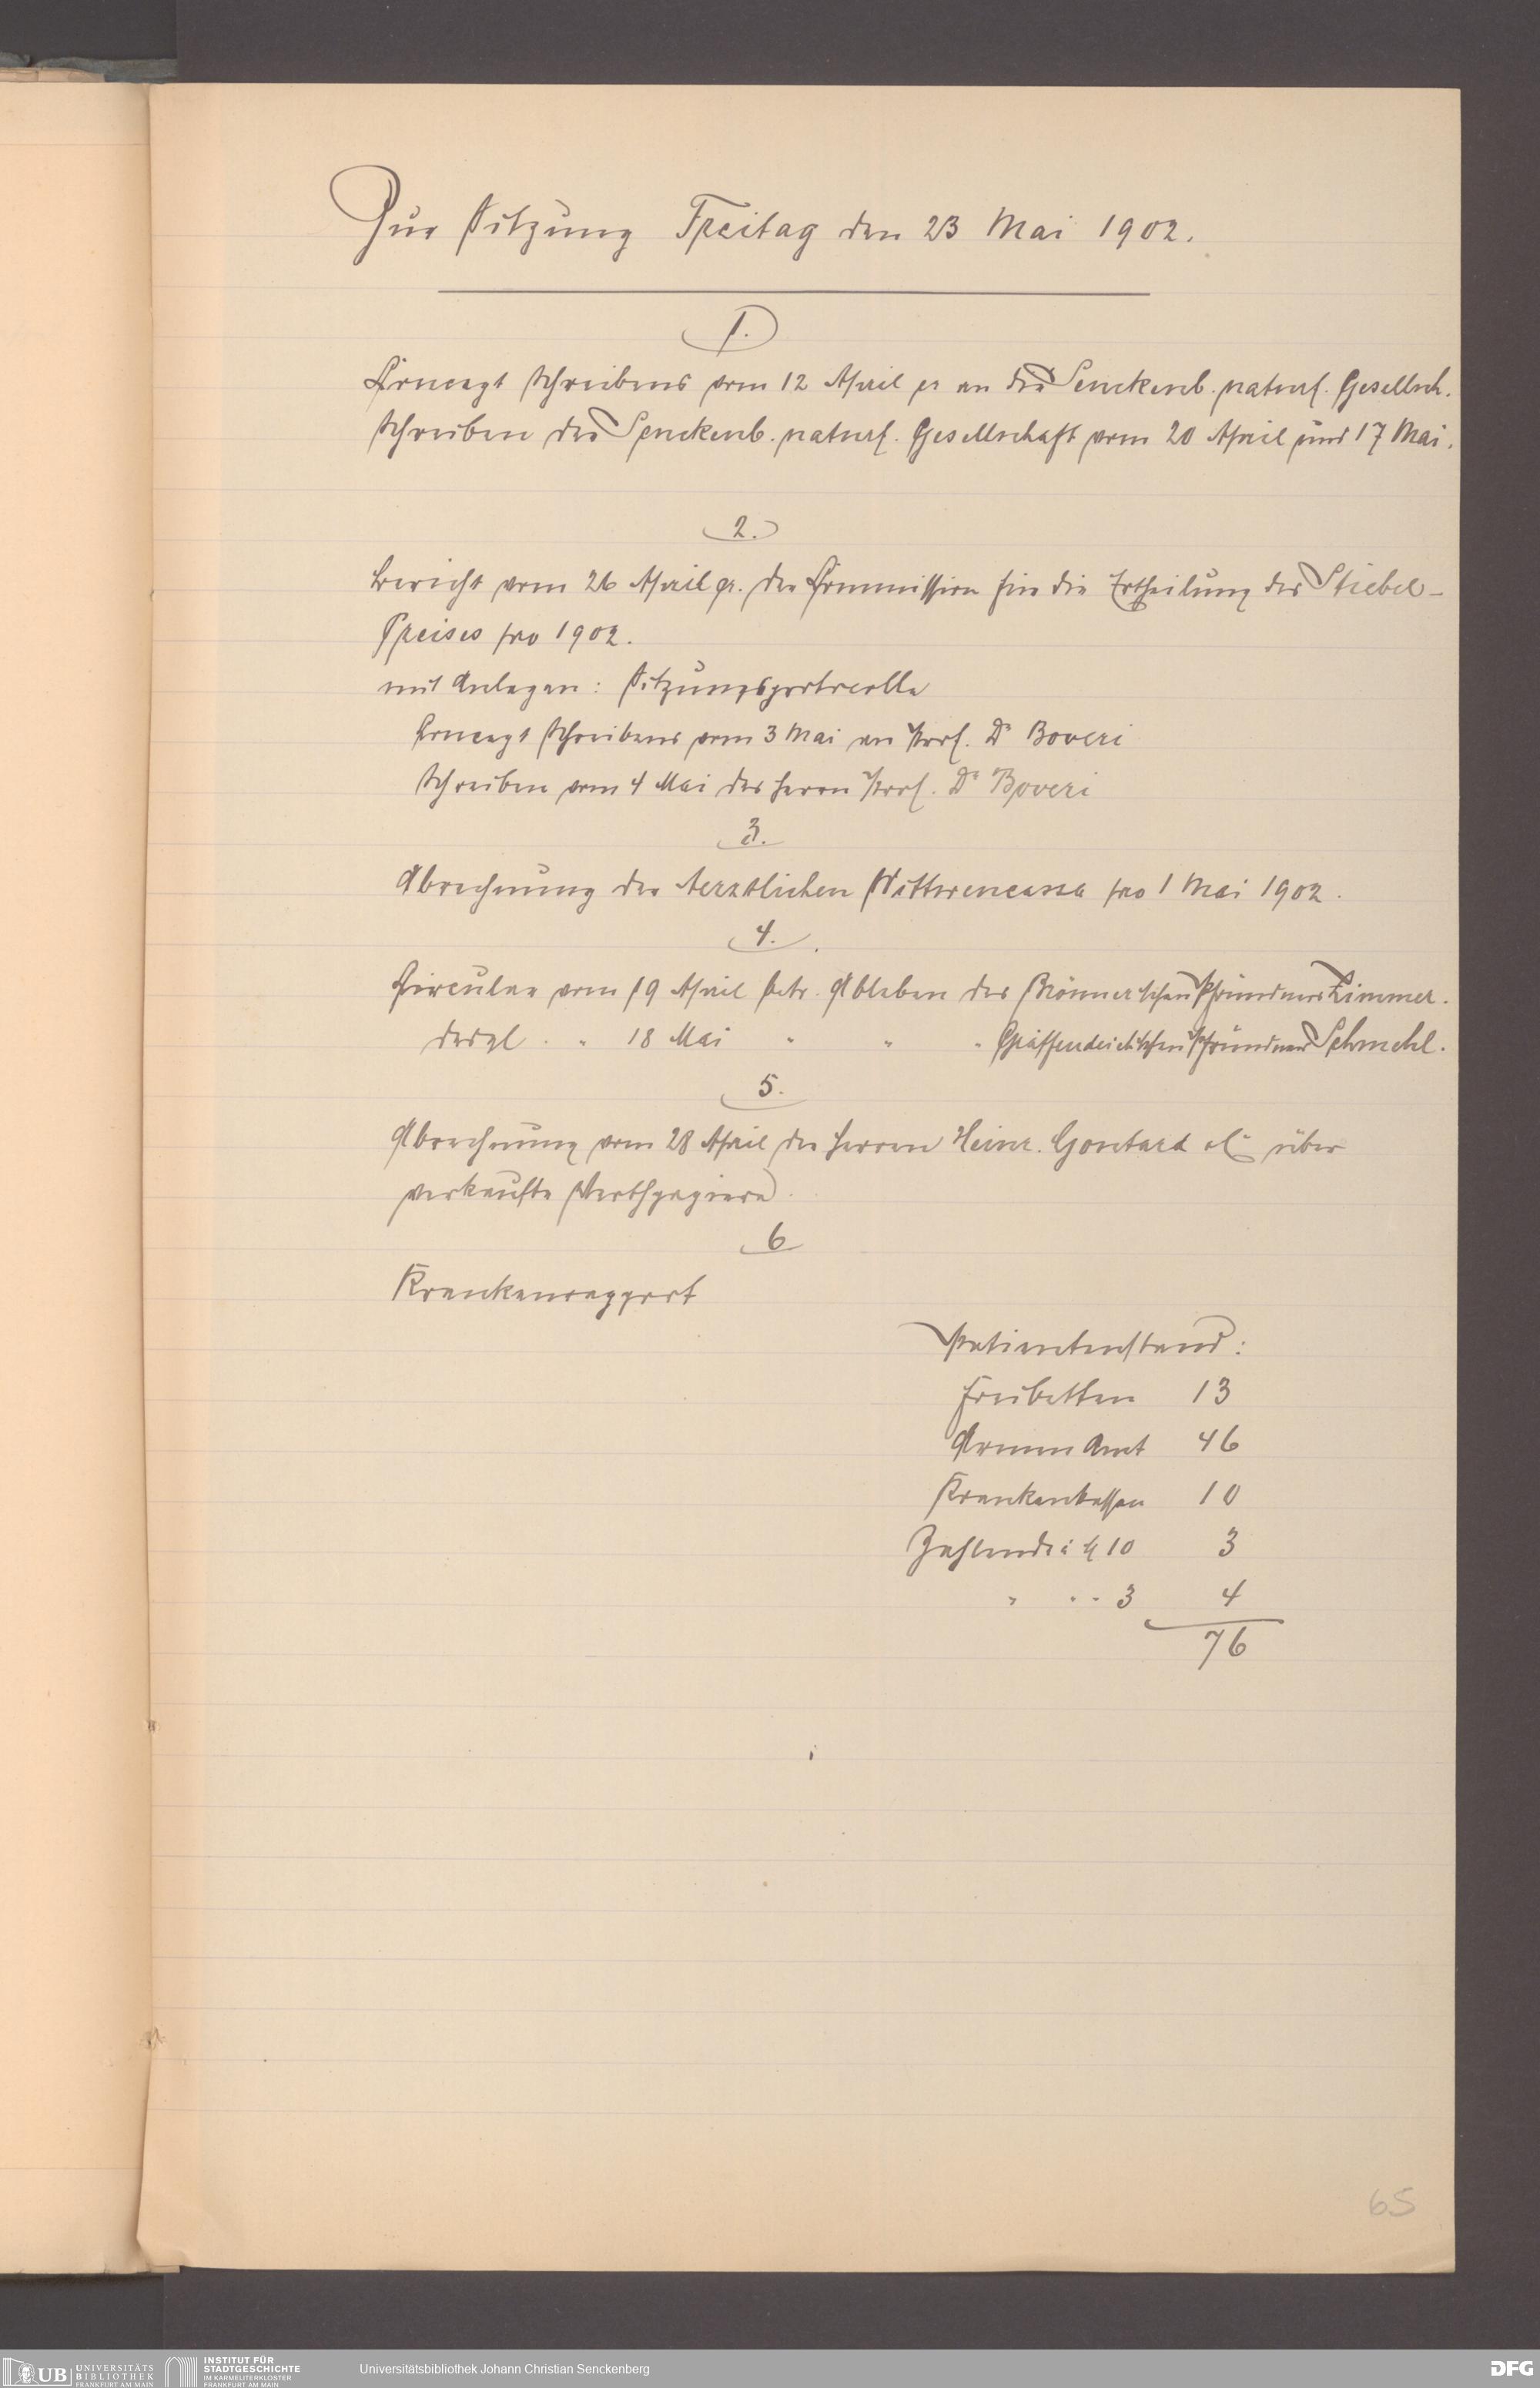 Zur Sitzung Freitag den 23 Mai 1902.
1.
Concept Schreibens vom 12 April cr an die Senckenb. naturf. Gesellsch.
Schreiben der Senckenb. naturf. Gesellschaft vom 20 April und 17 Mai.
2.
Bericht vom 26 April cr. der Commission für die Ertheilung des Stiebel-
Preises pro 1902.
mit Anlagen: Sitzungsprotocolle
Concept Schreibens vom 3 Mai an Prof. Dr Boveri
Schreiben vom 4 Mai des Herrn Prof. Dr Boveri
3.
Abrechnung der Aerztlichen Wittwencassa pro 1 Mai 1902.
4.
Circular vom 19 April betr. Ableben des Brönner'schen Pfründners Zimmer.
desgl. " 18 Mai " " " Pfründners Schmehl.
5.
Abrechnung vom 28 April der Herren Heinr. Gontard & Co über
verkaufte Werthpapiere.
6
Krankenrapport
Patientenstand:
Freibetten 13
Armen Amt 46
Krankenkassen 10
Zahlende à M 10 3
" " " 3 4
76
65
UB UNIVERSITÄTS
BIBLIOTHEK
FRANKFURT AM MAIN
INSTITUT FÜR
STADTGESCHICHTE
IM KARMELITERKLOSTER
FRANKFURT AM MAIN
Universitätsbibliothek Johann Christian Senckenberg
DFG